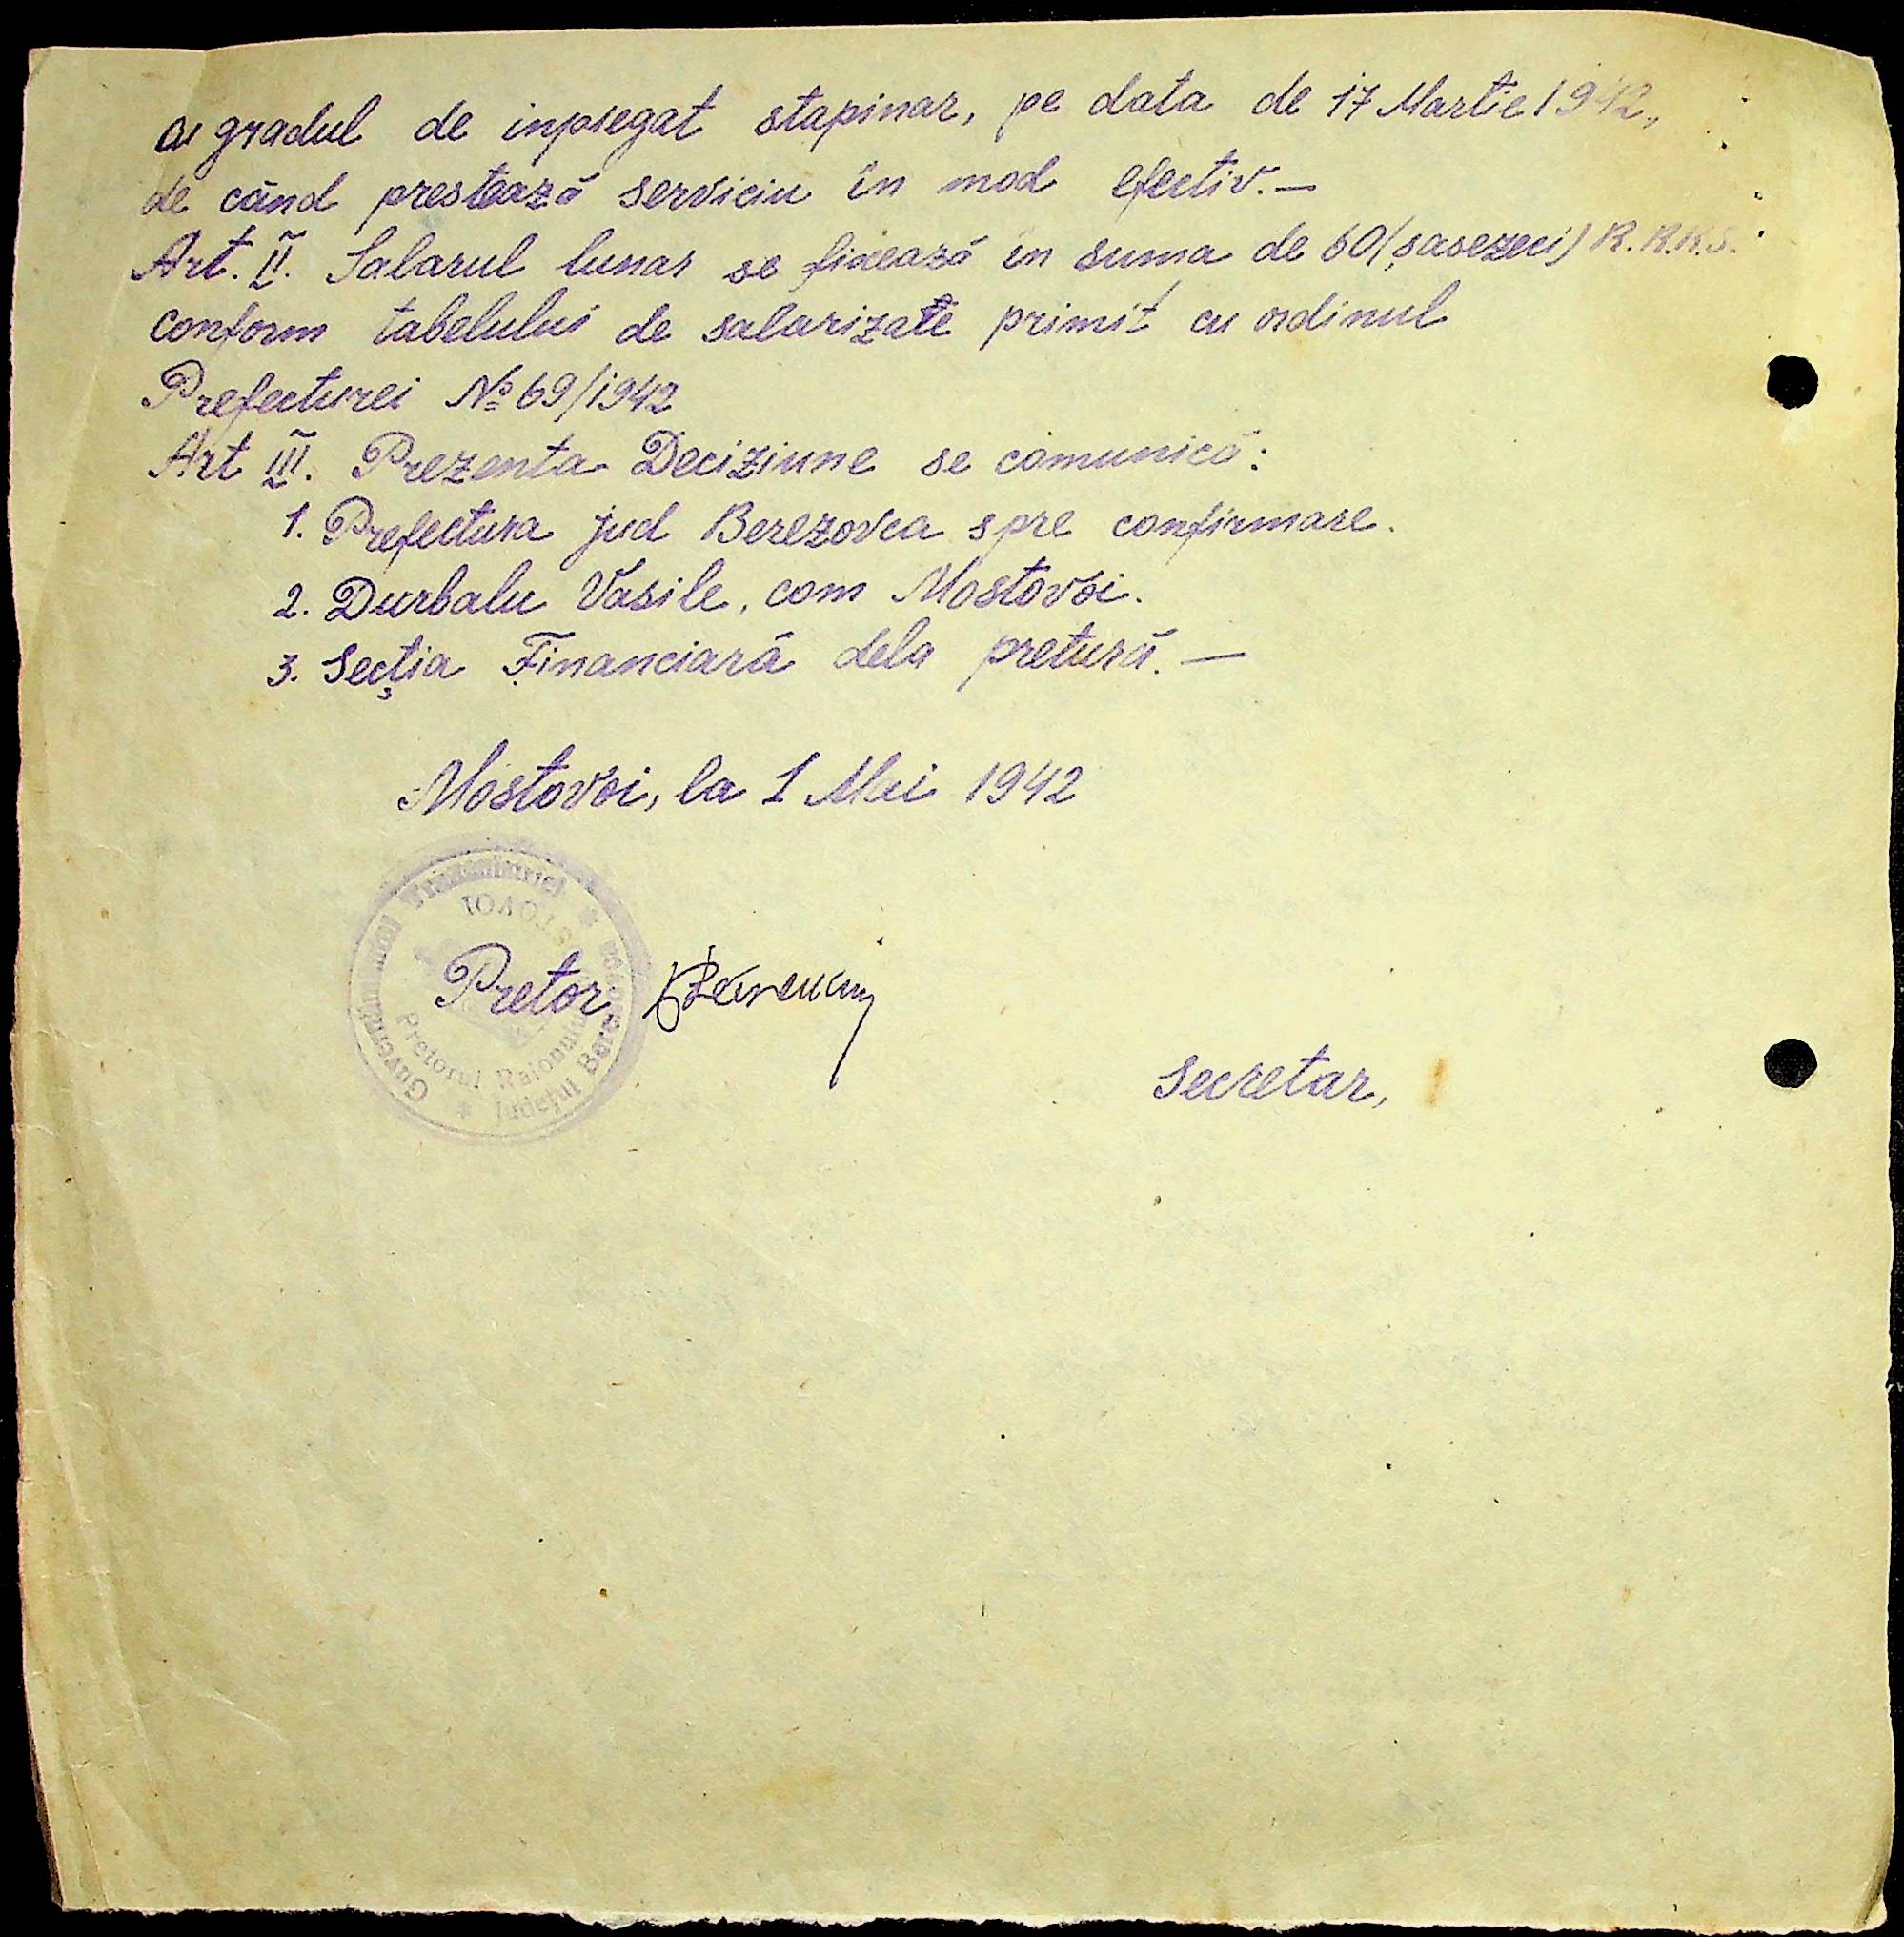 cu gradul de inpiegat stapinar, pe data de 17 Martie 1942,
de când prestează serviciu în mod efectiv.—
Art. II. Salarul lunar se fixează in suma de 60 (șasezeci) R.K.K.S.
conform tabelului de salarizate primit cu ordinul
Prefecturei № 69/1942
Art III. Prezenta Deciziune se comunică:
1. Prefectura jud Berezovca spre confirmare.
2. Durbalu Vasile, com Mostovoi.
3. Secția Financiară dela pretură.—
Mostovoi, la 1 Mai 1942
Guvernământul Transnistriei * Județul Berezovca *
Pretorul Raionului
MOSTOVOI
Pretor,
Secretar,